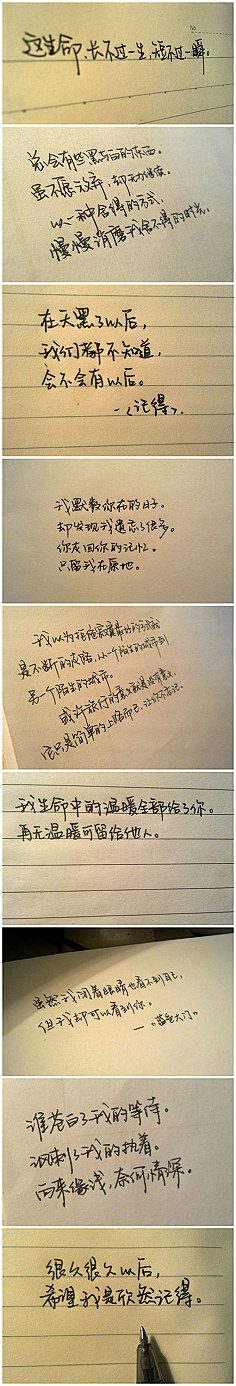 这生命,长不过一生,短不过一瞬。
总会有些黑与白的东西。
虽不愿放弃,却无力继续。
以一种舍得的方式,
慢慢消磨我舍不得的时光。
在天黑了以后,
我们都不知道,
会不会有以后。
—《记得》.
我默数你在的日子。
却发现我遗忘了很多。
你友回你的记忆。
只留我在原地。
我以为拒绝
最好的方式就
是不断的友陪,从一个陌生的城市到
另一个陌生的城市。
或许旅行的意义就是没有意义,
它只是简单的上路而已,让你忘记。
我生命中的温暖全部给了你。
再无温暖可留给他人。
虽然我闭着眼睛也看不到自己,
但我却可以看到你。
—《蓝色大门》
谁苍白了我的等待。
讽刺了我的执着。
而来缘浅,奈何情深。
很久很久以后,
希望我是欣然记得。